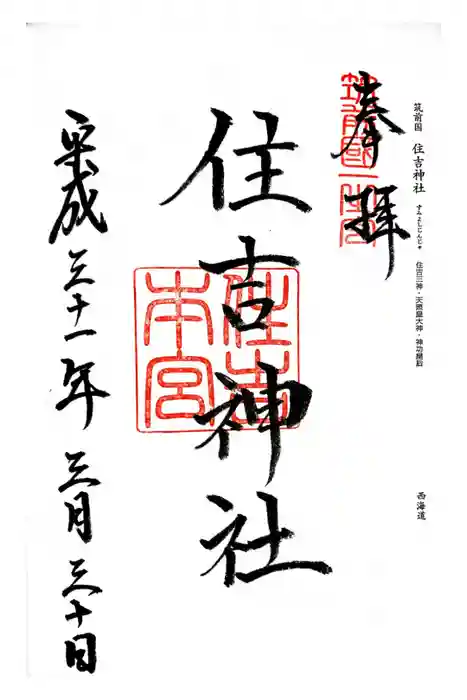 筑前国 住吉神社 すみよしじんじゃ 住吉三神・天照皇大神・神功皇后
西海道
奉拝
筑前國一之宮
住吉神社
住吉本宮
平成三十一年三月三十日